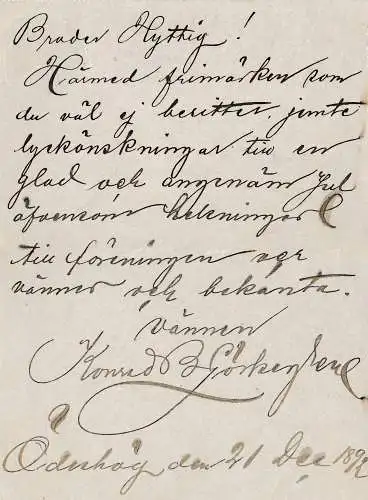 Broder Hyttig!
Härmed frimärken som
du väl ej besitter, jemte
lyckönskningar till en
glad och angenäm Jul
äfvensom helsningar
till föreningen och
vänner och bekanta.
vännen
Konrad
Ödeshög den 21 Dec 189